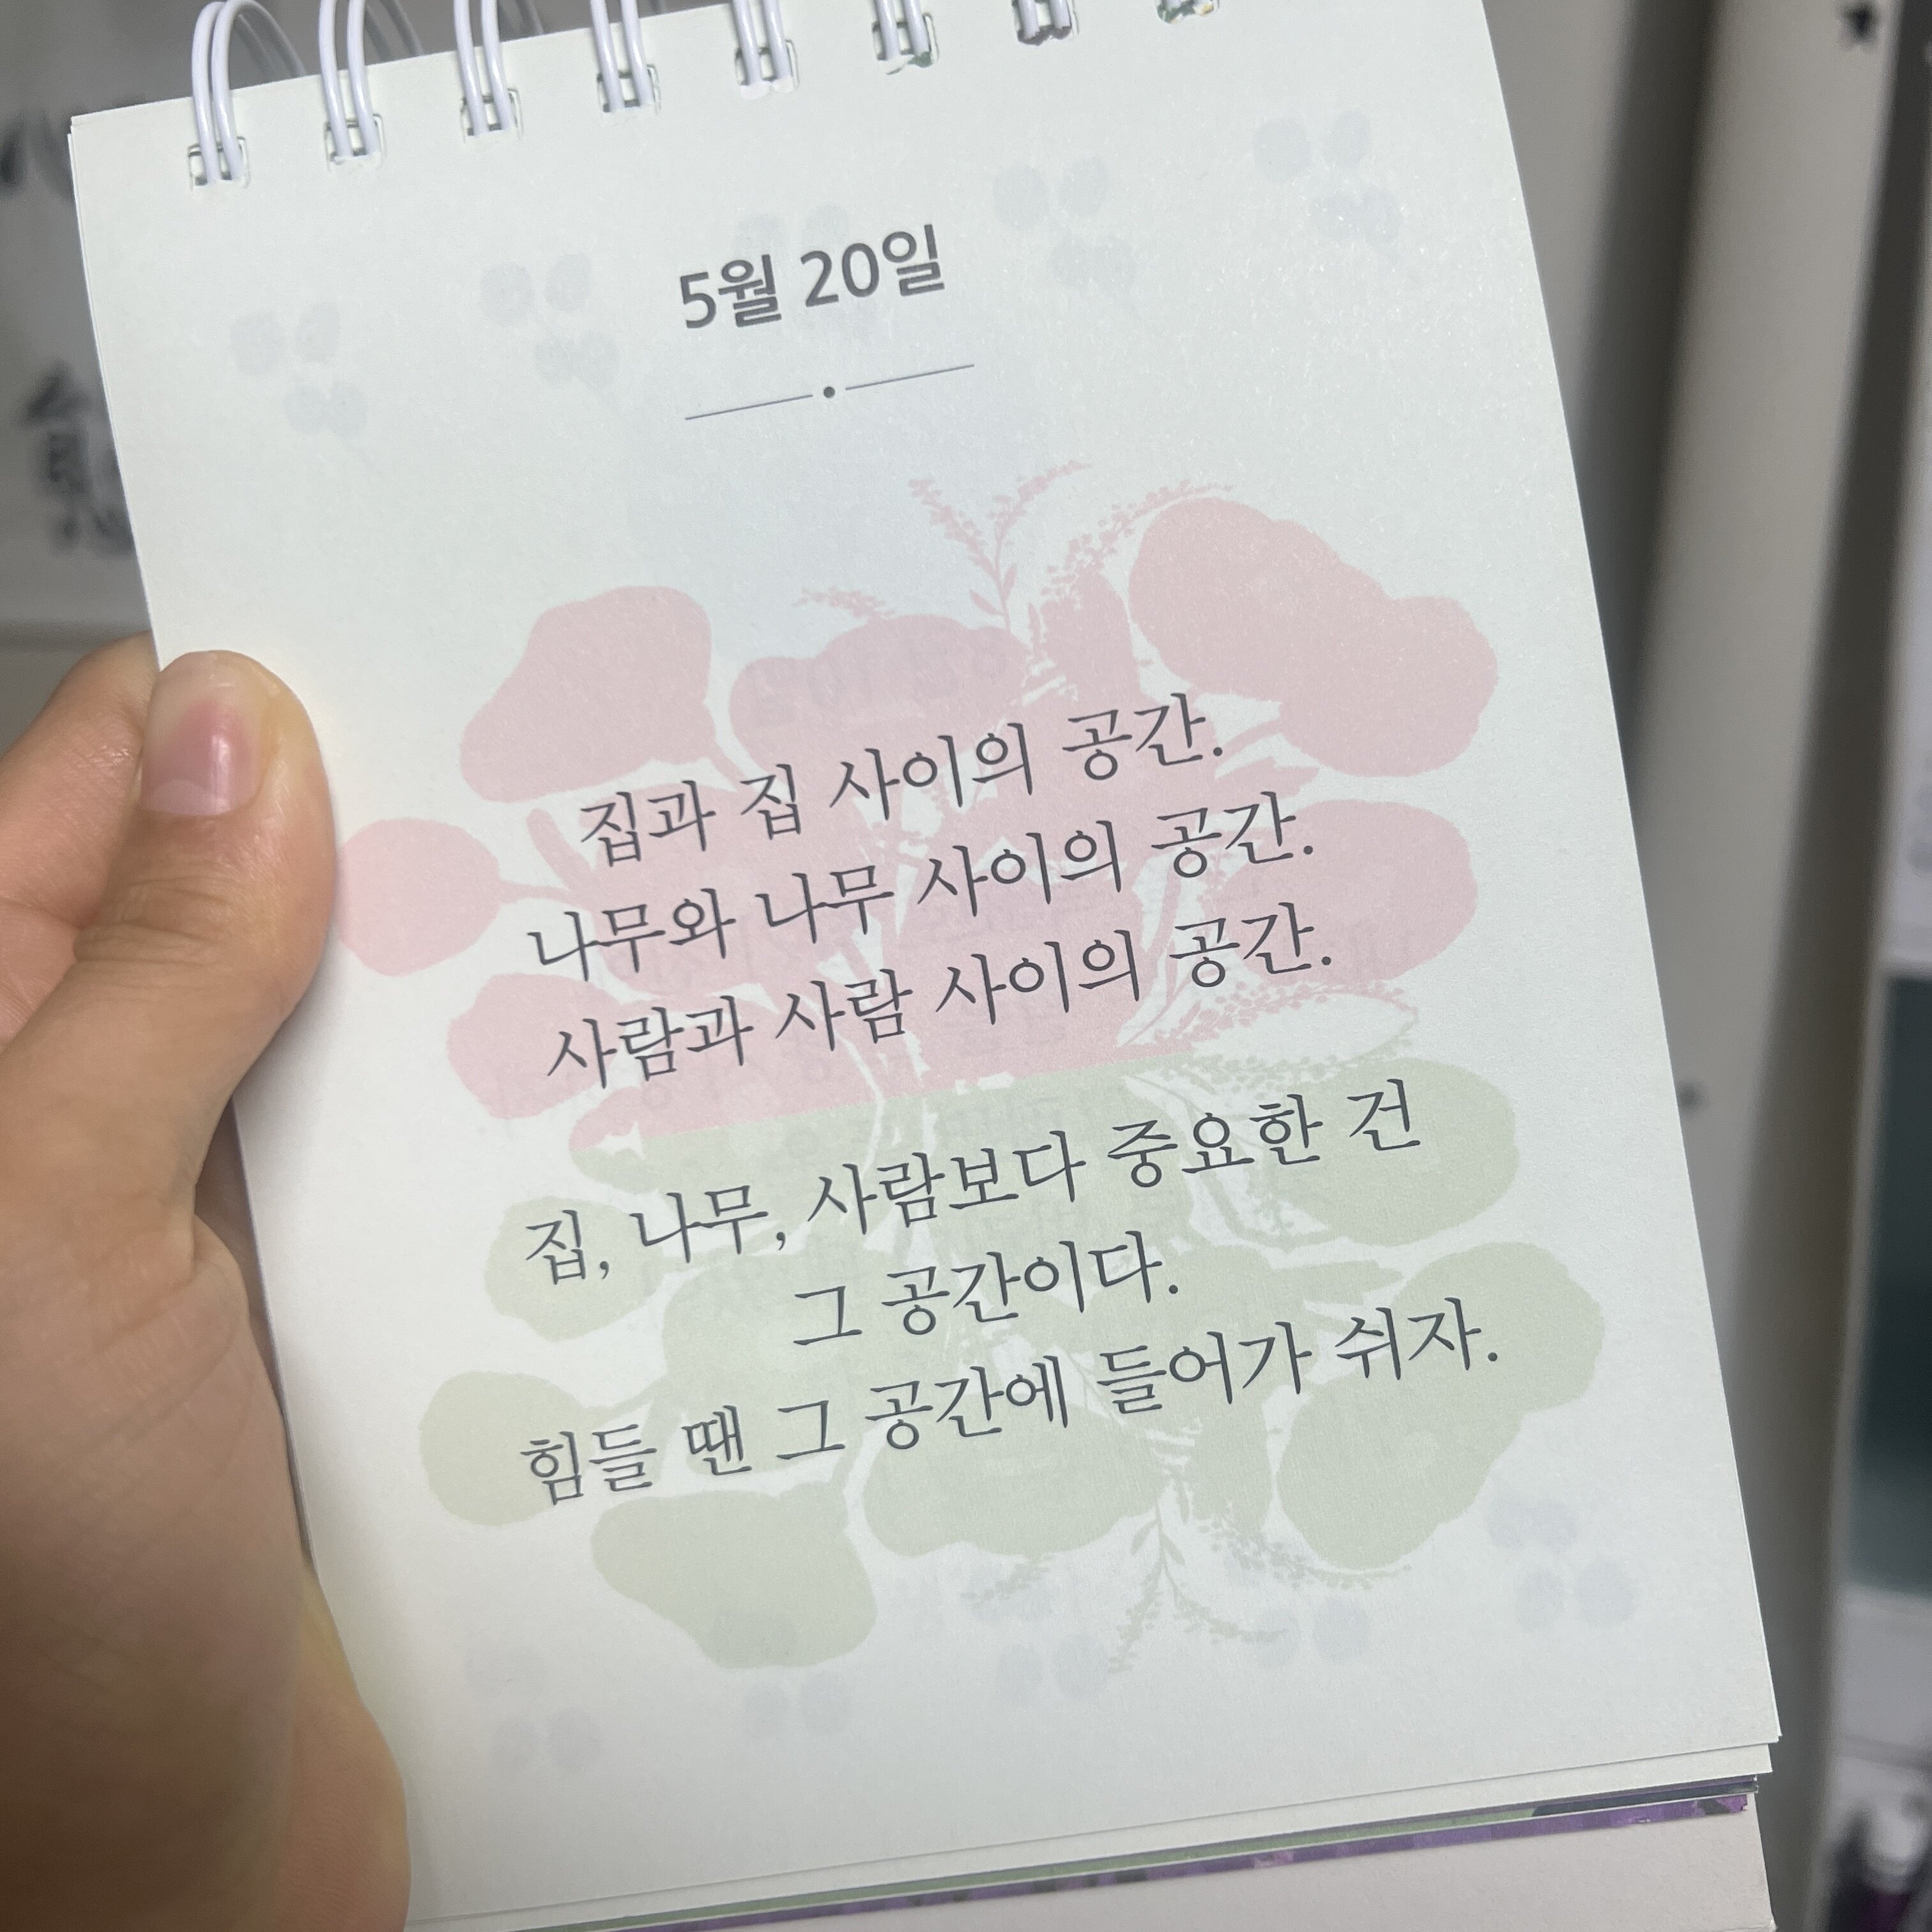 5월 20일
집과 집 사이의 공간.
나무와 나무 사이의 공간.
사람과 사람 사이의 공간.
집, 나무, 사람보다 중요한 건
그 공간이다.
힘들 땐 그 공간에 들어가 쉬자.